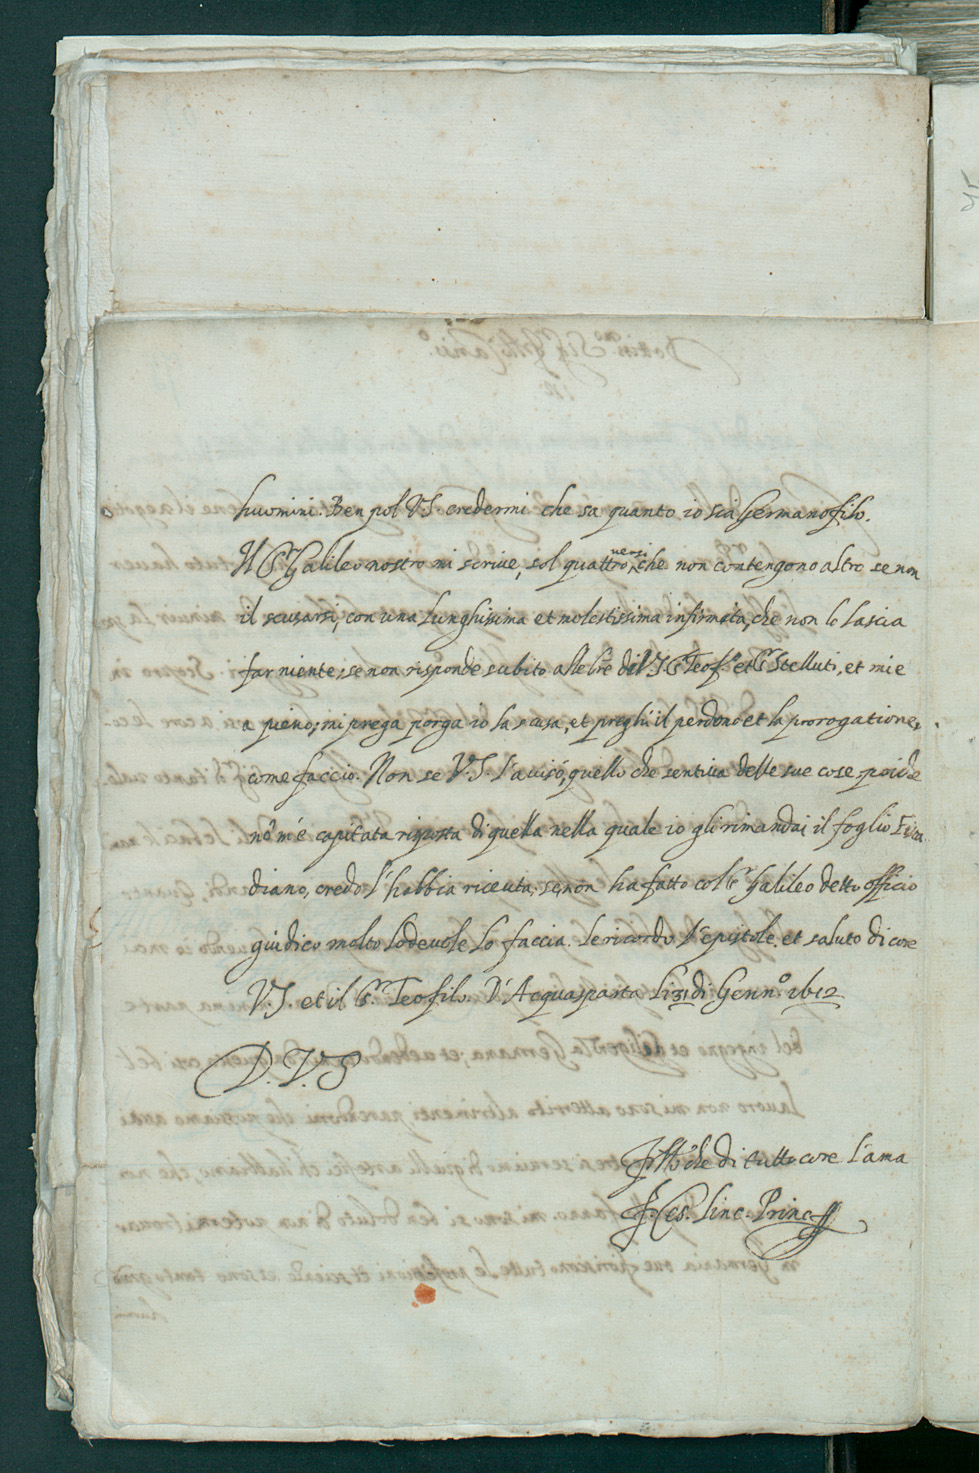 huomini. Ben pol V.S. credermi che sa quanto io sia Germanofilo.
Il Sr Galileo nostro mi scrive, sol quattro versi, che non contengono altro se non
il scusarsi, con una lunghissima et molestissima infirmità, che non lo lascia
far niente, se non risponde subito alle lre di V.S. Sr Teofo et Sr Stelluti, et mie
a pieno; mi prega porga io la scusa, et preghi il perdono et la prorogatione,
come faccio. Non se V.S. l'avisò, quello che sentiva delle sue cose, poiche
nō m'è capitata risposta di quella nella quale io gli rimandai il foglio
diano, credo l'habbia riceuta, se non ha fatto col Sr Galileo detto officio
giudico molto lodevole lo faccia. Le ricordo l'epistole, et saluto di core
V.S. et il Sr Teofilo. D'Acquasparta li 31 di Gennº 1612
D. V. S
che di tutto core l'ama
F. Ces. Linc. Princ.